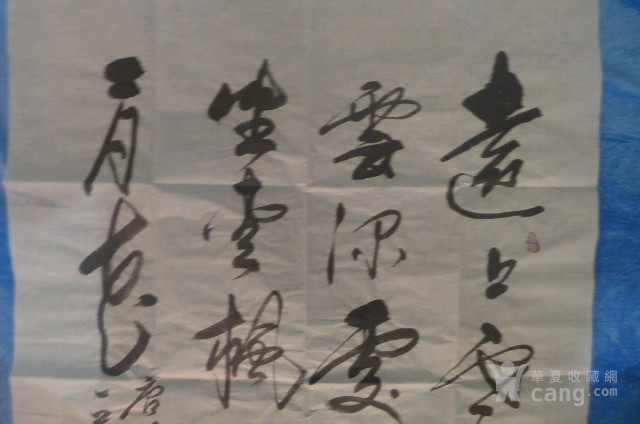 遠上寒
雲深處
坐愛楓
二月花
唐
華夏收藏網
cang.com